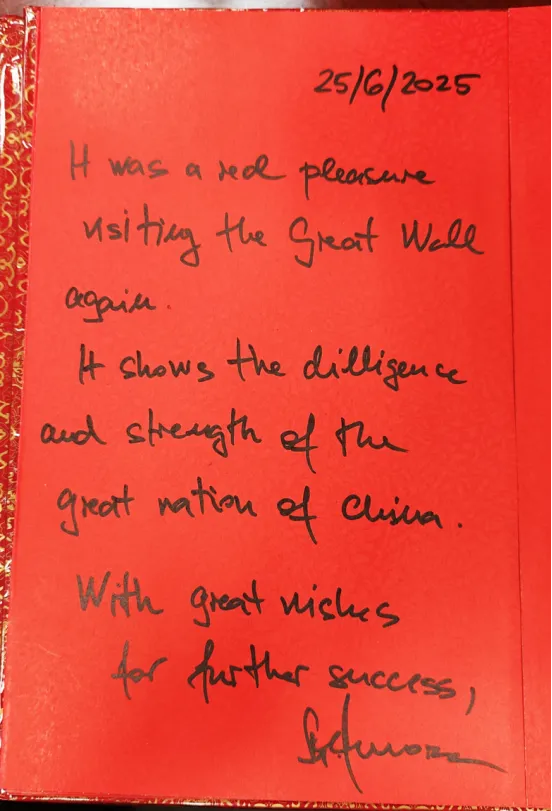 25/6/2025
It was a real pleasure
visiting the Great Wall
again.
It shows the dilligence
and strength of the
great nation of China.
With great wishes
for further success,